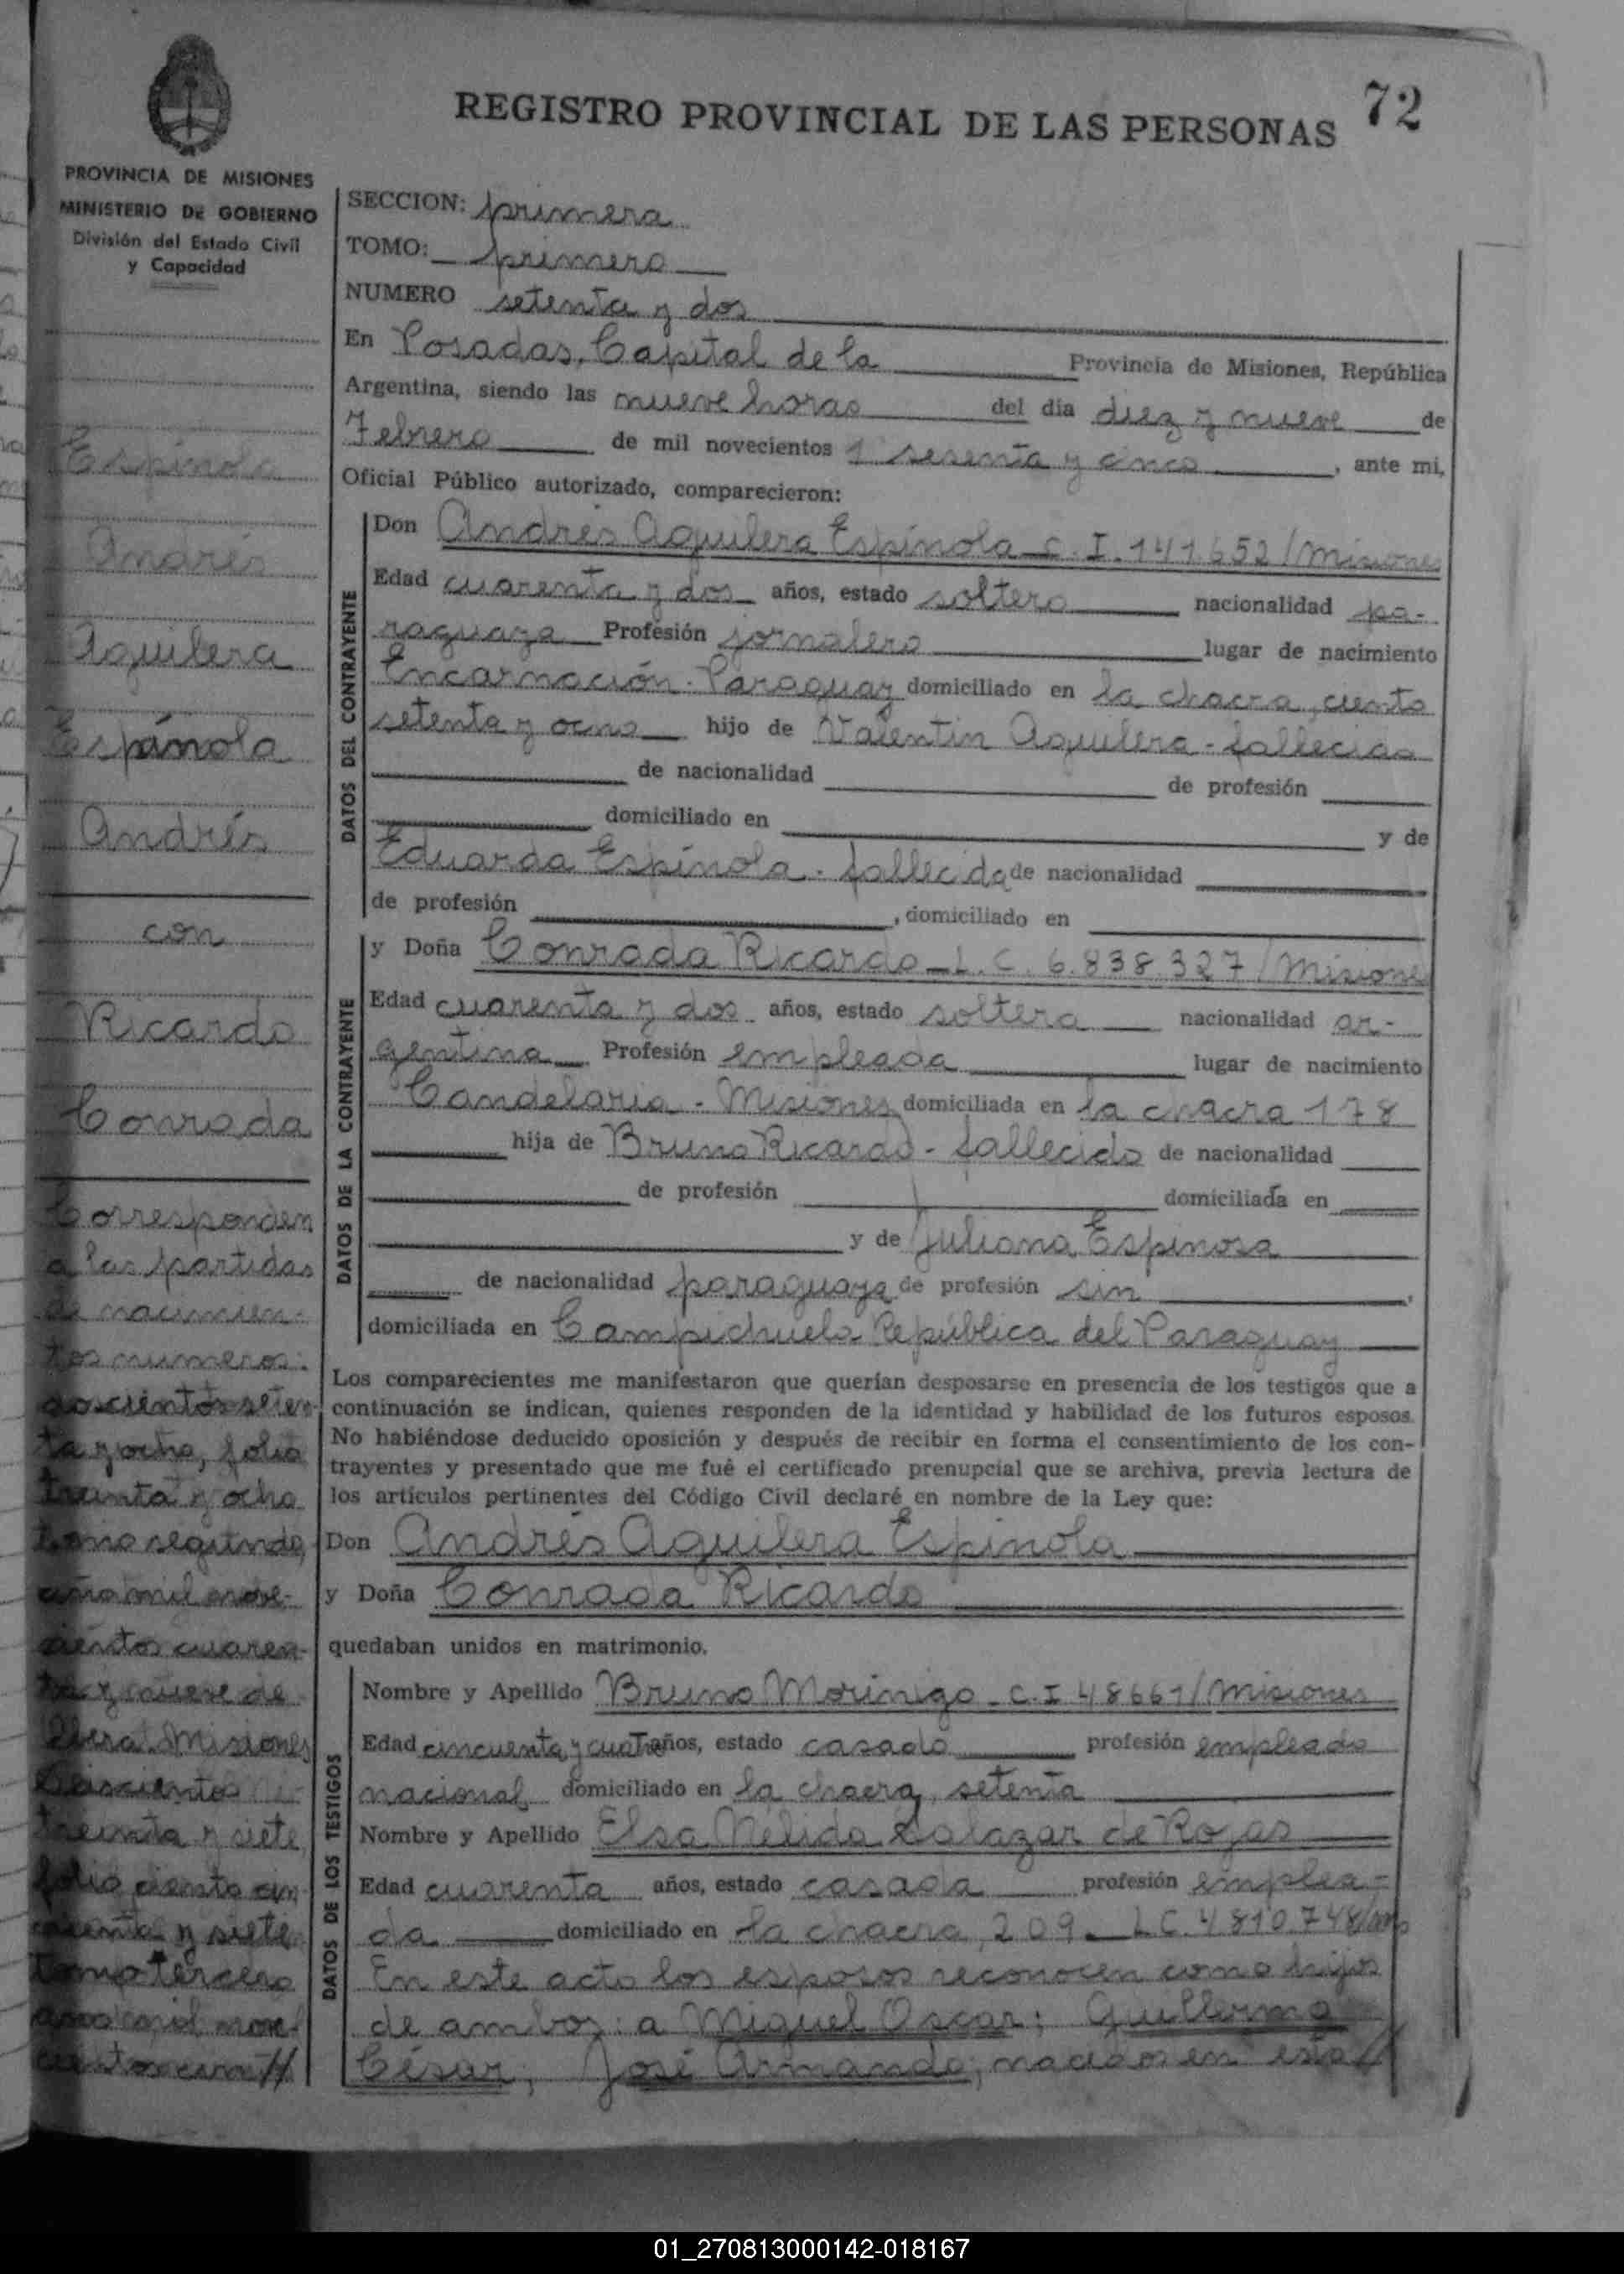 72
REGISTRO PROVINCIAL DE LAS PERSONAS
PROVINCIA DE MISIONES
MINISTERIO DE GOBIERNO
División del Estado Civil
y Capacidad
Espínola
Andrés
Aguilera
Espínola
Andrés
con
Ricardo
Conrada
Corresponden
a las partidas
de nacimien-
tos numeros:
doscientos seten-
ta y ocho, folio
treinta y ocho
tomo segundo,
año mil nove-
cientos cuaren-
ta y nueve de
Oberá. Misiones
treinta y siete,
folio ciento cin
cuenta y siete
tomo tercero
año mil nove-
SECCION: primera
TOMO: primero
NUMERO setenta y dos
En Posadas, Capital de la Provincia de Misiones, República
Argentina, siendo las nueve horas del día diez y nueve de
Febrero de mil novecientos sesenta y cinco, ante mi,
Oficial Público autorizado, comparecieron:
DATOS DEL CONTRAYENTE
Don Andrés Aguilera Espínola C.I. 141.652/Misiones
Edad cuarenta y dos años, estado soltero nacionalidad pa-
raguaya Profesión jornalero lugar de nacimiento
Encarnación - Paraguay domiciliado en la chacra, ciento
setenta y ocho hijo de Valentín Aguilera - fallecido
de nacionalidad de profesión
domiciliado en y de
Eduarda Espínola - fallecida de nacionalidad
de profesión , domiciliado en
DATOS DE LA CONTRAYENTE
y Doña Conrada Ricardo - L.C. 6.838.327/Misiones
Edad cuarenta y dos años, estado soltera nacionalidad ar-
gentina Profesión empleada lugar de nacimiento
Candelaria - Misiones domiciliada en la chacra 178
hija de Bruno Ricardo - fallecido de nacionalidad
de profesión domiciliada en
y de Juliana Espinosa
de nacionalidad paraguaya de profesión sin ,
domiciliada en Campichuelo República del Paraguay
Los comparecientes me manifestaron que querían desposarse en presencia de los testigos que a
continuación se indican, quienes responden de la identidad y habilidad de los futuros esposos.
No habiéndose deducido oposición y después de recibir en forma el consentimiento de los con-
trayentes y presentado que me fué el certificado prenupcial que se archiva, previa lectura de
los artículos pertinentes del Código Civil declaré en nombre de la Ley que:
Don Andrés Aguilera Espínola
y Doña Conrada Ricardo
quedaban unidos en matrimonio.
DATOS DE LOS TESTIGOS
Nombre y Apellido Bruno Morinigo - C.I 48661/Misiones
Edad cincuenta y cuatro años, estado casado profesión empleado
nacional domiciliado en la chacra, setenta
Nombre y Apellido Elsa Nélida Salazar de Rojas
Edad cuarenta años, estado casada profesión emplea-
da domiciliado en la chacra, 209 - L.C. 4810748
En este acto los esposos reconocen como hijos
de ambos: a Miguel Oscar; Guillermo
César; José Armando; nacidos en esta //
01_270813000142-018167